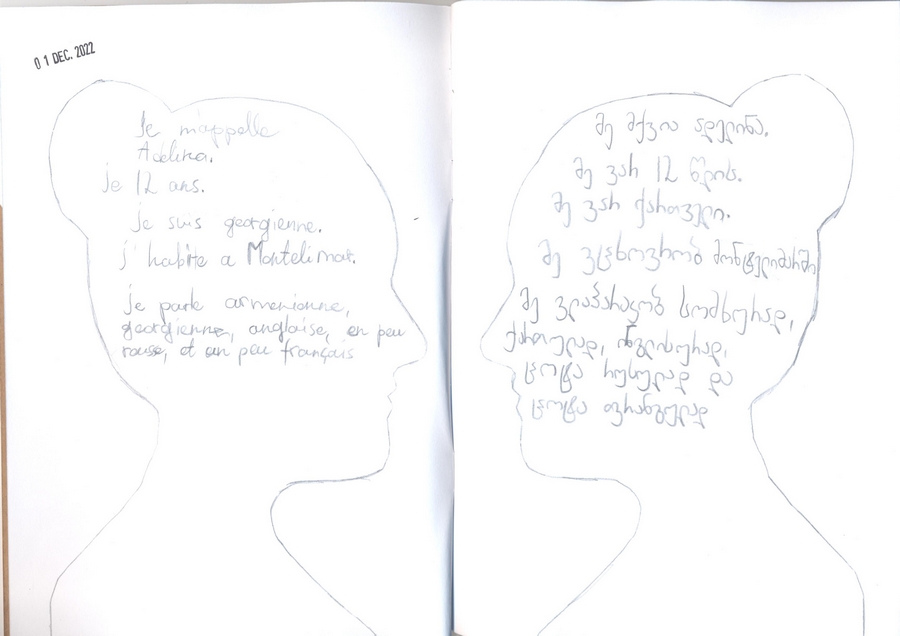 01 DEC. 2022
Je m'appelle
Adelina.
je 12 ans.
je suis georgienne.
j' habite a Montelimar.
je parle armenionne,
georgienne, anglaise, en peu
rousse, et un peu français
მე მქვია ადელინა.
მე ვარ 12 წლის.
მე ვარ ქართველი.
მე ვცხოვრობ მონტელიმარში
მე ვლაპარაკობ სომხურად,
ქართულად, ინგლისურად,
ცოტა რუსულად და
ცოტა ფრანგულად